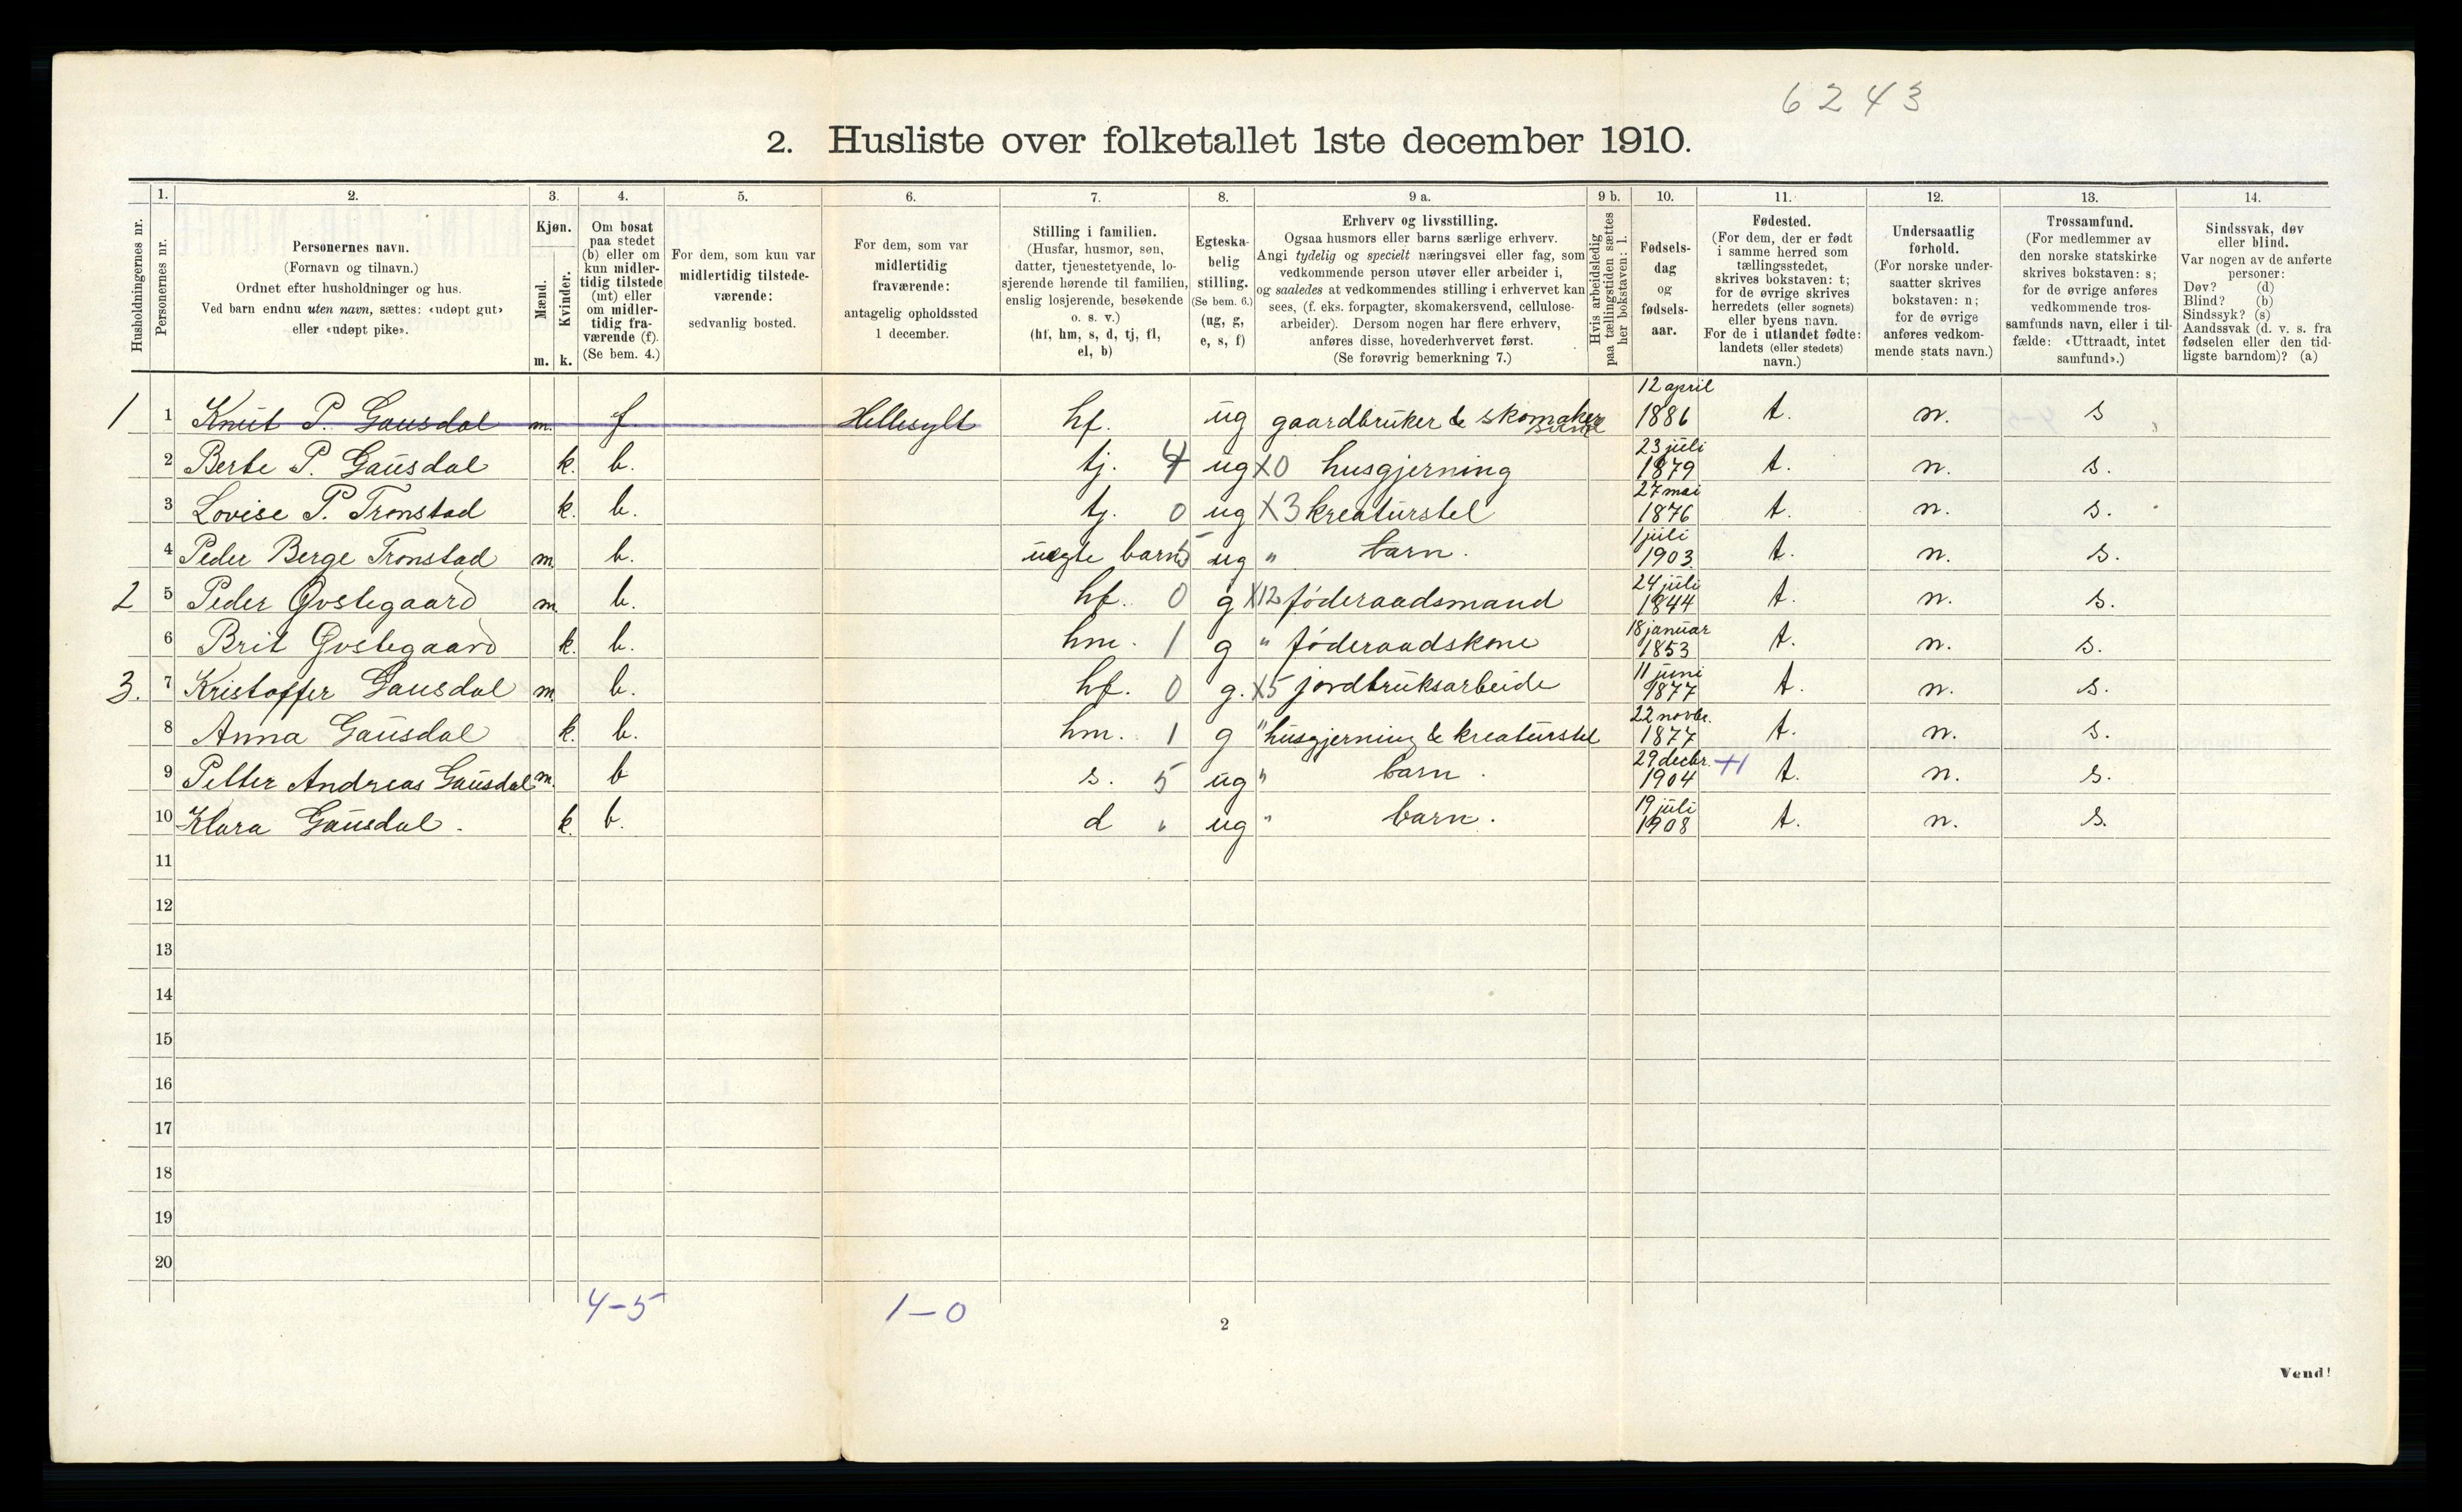 6243
2. Husliste over folketallet 1ste december 1910.
1. 2. 3. 4. 5. 6. 7. 8. 9 a. 9 b. 10. 11. 12. 13. 14.
Husholdningernes nr.
Personernes nr.
Personernes navn.
(Fornavn og tilnavn.)
Ordnet efter husholdninger og hus.
Ved barn endnu uten navn, sættes: «udøpt gut»
eller «udøpt pike».
Kjøn.
Mænd.
Kvinder.
m. k.
Om bosat
paa stedet
(b) eller om
kun midler-
tidig tilstede
(mt) eller
om midler-
tidig fra-
værende (f).
(Se bem. 4.)
For dem, som kun var
midlertidig tilstede-
værende:
sedvanlig bosted.
For dem, som var
midlertidig
fraværende:
antagelig opholdssted
1 december.
Stilling i familien.
(Husfar, husmor, søn,
datter, tjenestetyende, lo-
sjerende hørende til familien,
enslig losjerende, besøkende
o. s. v.)
(hf, hm, s, d, tj, fl,
el, b)
Egteska-
belig
stilling.
(Se bem. 6.)
(ug, g,
e, s, f)
Erhverv og livsstilling.
Ogsaa husmors eller barns særlige erhverv.
Angi tydelig og specielt næringsvei eller fag, som
vedkommende person utøver eller arbeider i,
og saaledes at vedkommendes stilling i erhvervet kan
sees, (f. eks. forpagter, skomakersvend, cellulose-
arbeider). Dersom nogen har flere erhverv,
anføres disse, hovederhvervet først.
(Se forøvrig bemerkning 7.)
Hvis arbeidsledig
paa tællingstiden sættes
her bokstaven: l.
Fødsels-
dag
og
fødsels-
aar.
Fødested.
(For dem, der er født
i samme herred som
tællingsstedet,
skrives bokstaven: t;
for de øvrige skrives
herredets (eller sognets)
eller byens navn.
For de i utlandet fødte:
landets (eller stedets)
navn.)
Undersaatlig
forhold.
(For norske under-
saatter skrives
bokstaven: n;
for de øvrige
anføres vedkom-
mende stats navn.)
Trossamfund.
(For medlemmer av
den norske statskirke
skrives bokstaven: s;
for de øvrige anføres
vedkommende tros-
samfunds navn, eller i til-
fælde: «Uttraadt, intet
samfund».)
Sindssvak, døv
eller blind.
Var nogen av de anførte
personer:
Døv? (d)
Blind? (b)
Sindssyk? (s)
Aandssvak (d. v. s. fra
fødselen eller den tid-
ligste barndom)? (a)
1 1 Knut P. Gausdal m. f. Hellesylt hf. ug gaardbruker & skomaker 12 april 1886 t. n. s
2 Berte P. Gausdal k. b. tj. 4 ug X0 husgjerning 23 juli 1879 t. n. s.
3 Lovise P. Tronstad k. b. tj. 0 ug X3 kreaturstel 27 mai 1876 t. n. s.
4 Peder Berge Tronstad m. b. uegte barn 5 ug " barn. 1 juli 1903 t. n. s.
2 5 Peder Øvstegaard m. b. hf. 0 g X12 føderaadsmand 24 juli 1844 t. n. s.
6 Brit Øvstegaard k. b. hm. 1 g " føderaadskone 18 januar 1853 t. n. s.
3. 7 Kristoffer Gausdal m. b. hf. 0 g. X5 jordbruksarbeide 11 juni 1877 t. n. s.
8 Anna Gausdal k. b. hm. 1 g " husgjerning & kreaturstel 22 novbr. 1877 t. n. s.
9 Petter Andreas Gausdal m. b s. 5 ug " barn. 29 decbr. 1904 +1 t. n. s.
10 Klara Gausdal. k. b. d " ug " barn. 19 juli 1908 t. n. s.
11
12
13
14
15
16
17
18
19
20
4-5 1-0
2
Vend!